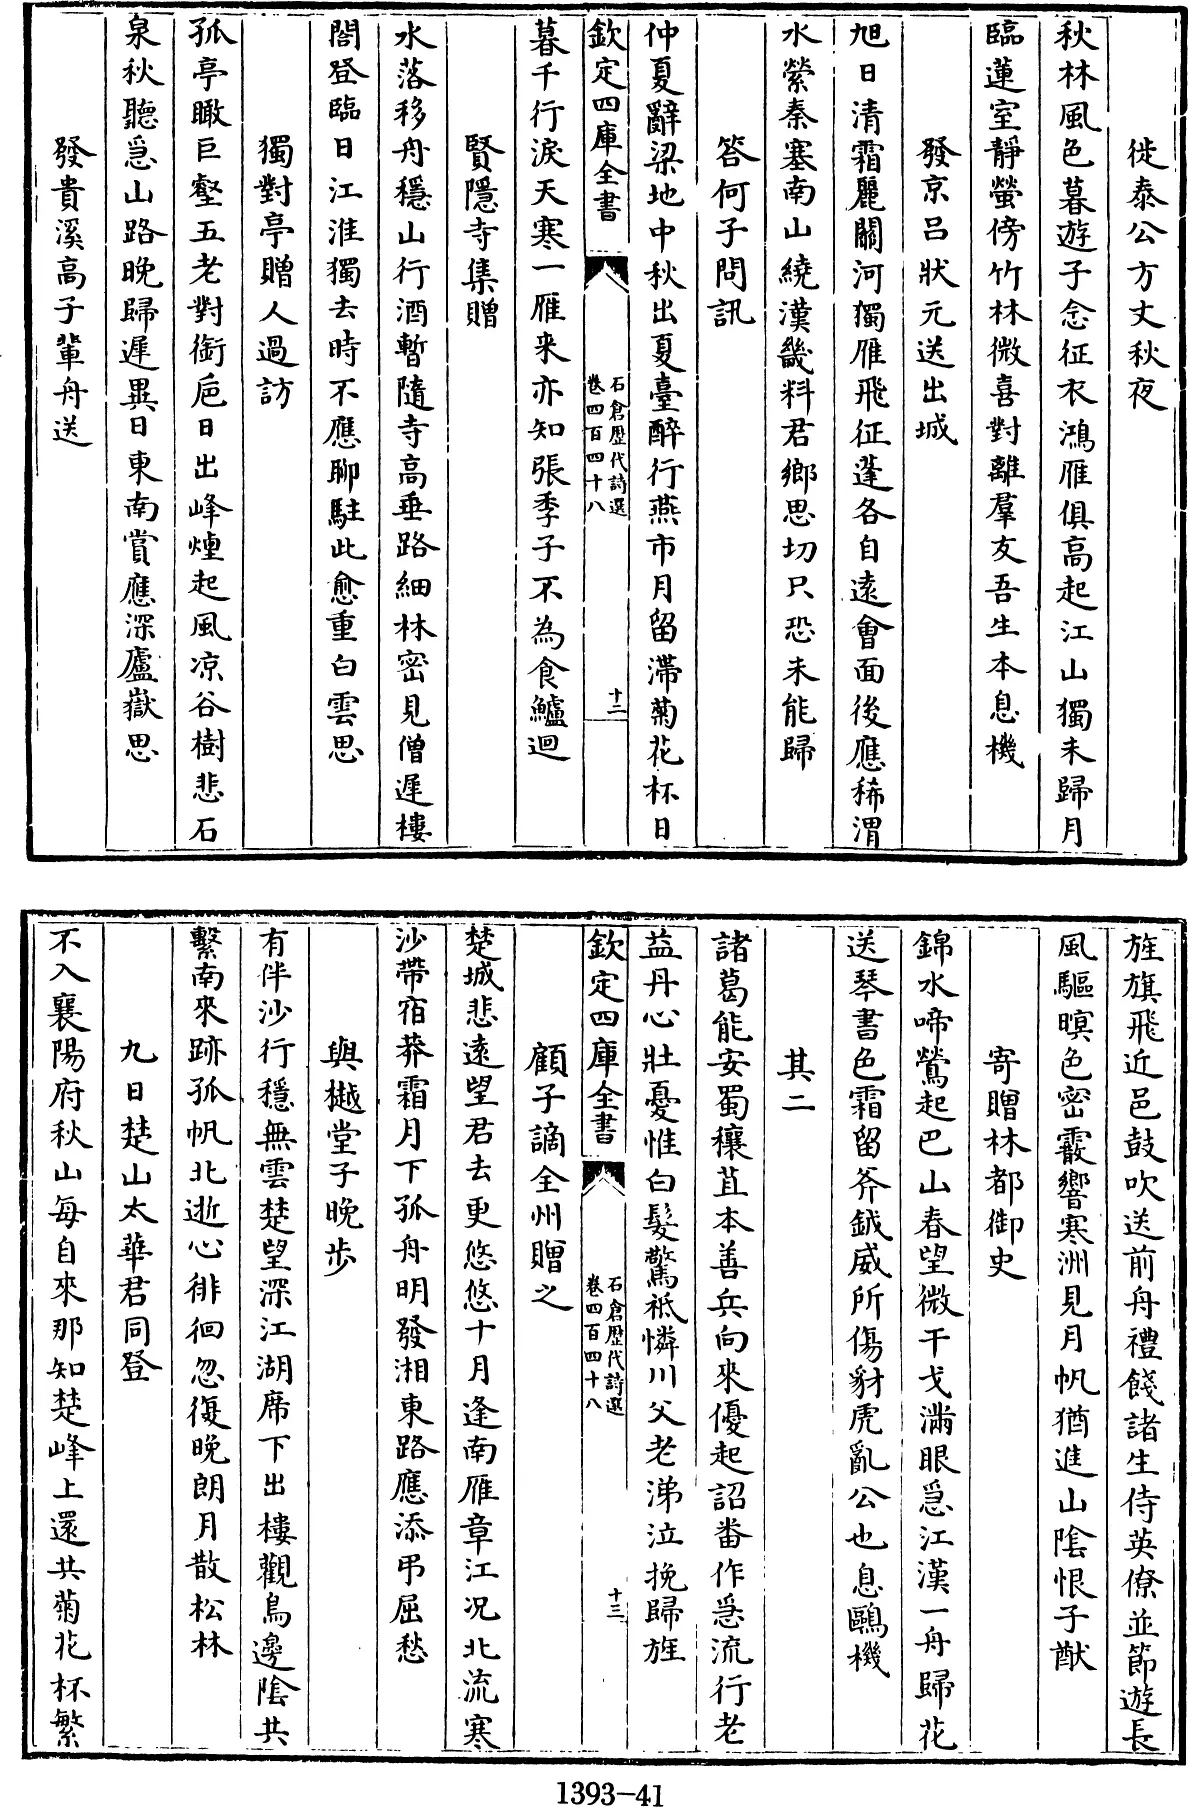 徙泰公方丈秋夜
秋林風色暮遊子念征衣鴻雁俱高起江山獨未歸月
臨蓮室靜螢傍竹林微喜對離羣友吾生本息機
發京呂狀元送出城
旭日清霜麗關河獨雁飛征蓬各自遠會面後應稀渭
水縈秦塞南山繞漢畿料君鄉思切只恐未能歸
答何子問訊
仲夏辭梁地中秋出夏臺醉行燕市月留滯菊花杯日
欽定四庫全書
石倉歷代詩選
卷四百四十八
十二
暮千行淚天寒一雁来亦知張季子不為食鱸迴
賢隱寺集贈
水落移舟穩山行酒暫隨寺高垂路細林密見僧遲樓
閣登臨日江淮獨去時不應聊駐此愈重白雲思
獨對亭贈人過訪
孤亭瞰巨壑五老對衝巵日出峰煙起風凉谷樹悲石
泉秋聽急山路晚歸遲異日東南賞應深廬嶽思
發貴溪高子輩舟送
旌旗飛近邑鼓吹送前舟禮餞諸生侍英僚並節遊長
風驅暝色密霰響寒洲見月帆猶進山陰恨子猷
寄贈林都御史
錦水啼鶯起巴山春望微干戈滿眼急江漢一舟歸花
送琴書色霜留斧鉞威所傷豺虎亂公也息鷗機
其二
諸葛能安蜀穰苴本善兵向來優起詔畨作急流行老
益丹心壯憂惟白髮驚祗憐川父老涕泣挽歸旌
欽定四庫全書
石倉歷代詩選
卷四百四十八
十三
顧子謫全州贈之
楚城悲遠望君去更悠悠十月逢南雁章江况北流寒
沙帶宿莽霜月下孤舟明發湘東路應添弔屈愁
與樾堂子晚步
有伴沙行穩無雲楚望深江湖席下出樓觀鳥邊陰共
繫南來跡孤帆北逝心徘徊忽復晚朗月散松林
九日楚山太華君同登
不入襄陽府秋山每自來那知楚峰上還共菊花杯繁
1393-41